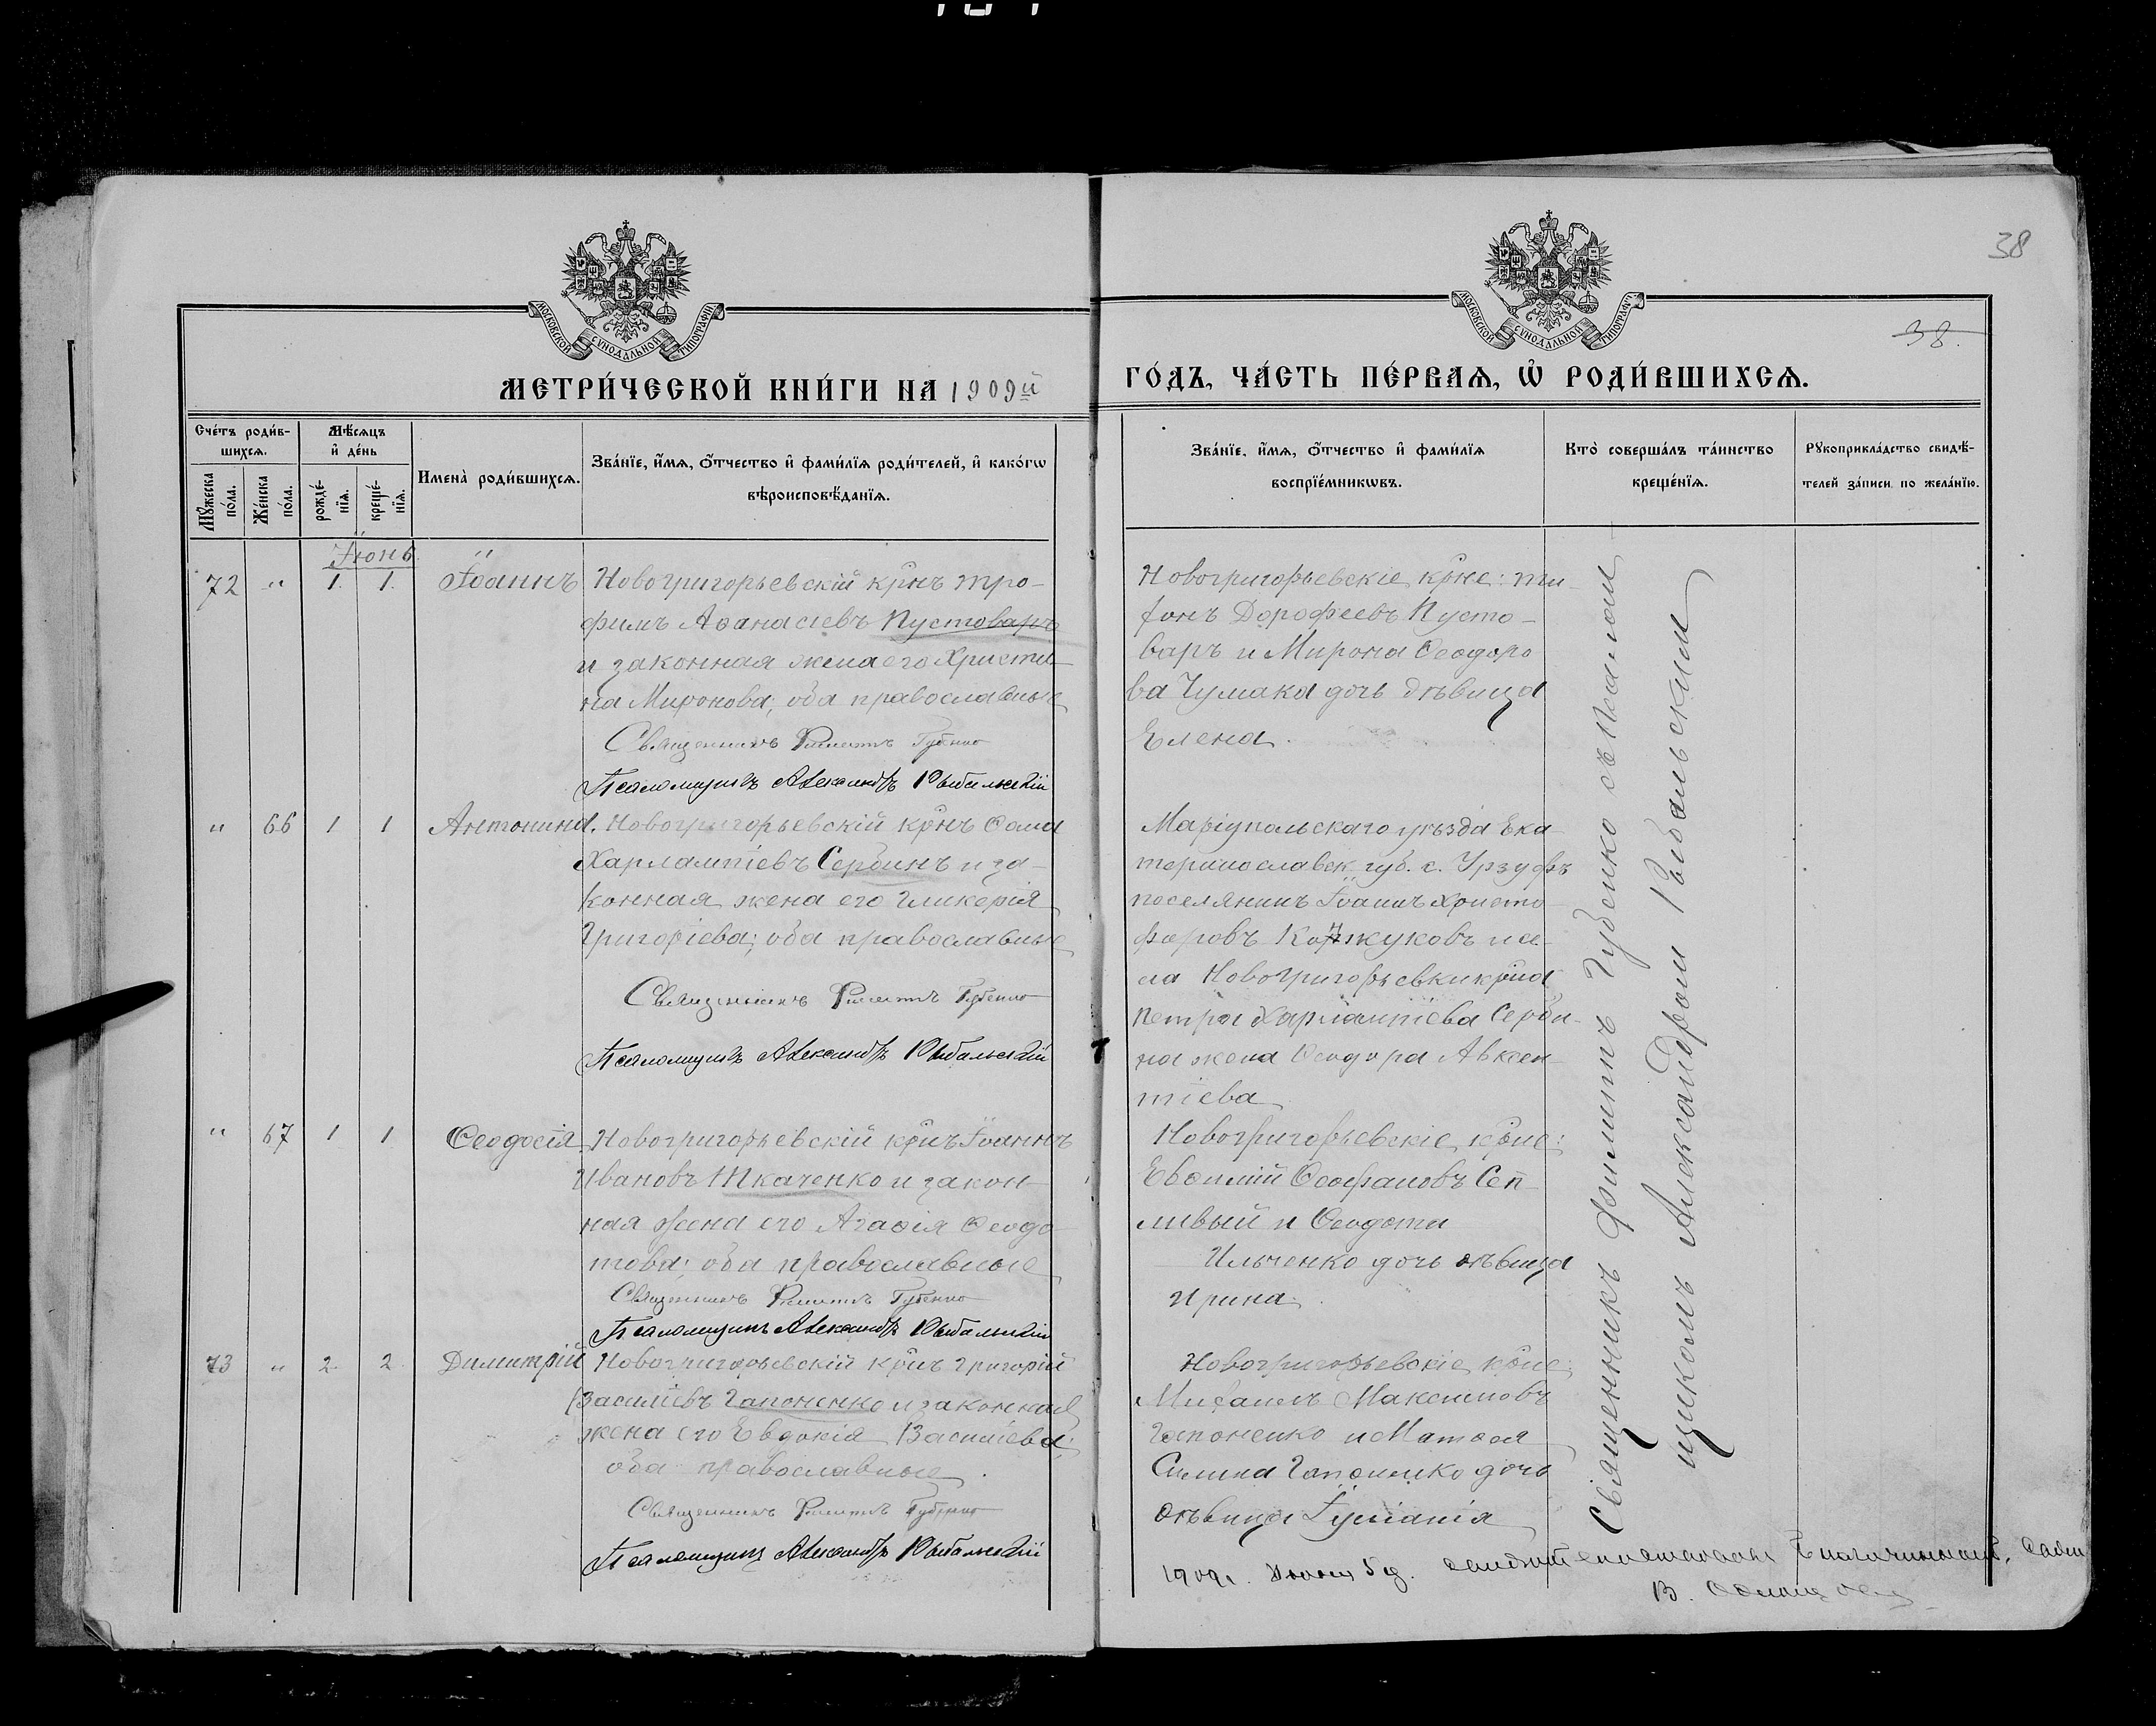 38
38.
МОСКОВСКОЙ СѴНОДАЛЬНОЙ ТИПОГРАФІИ
МОСКОВСКОЙ СѴНОДАЛЬНОЙ ТИПОГРАФІИ
МЕТРИ́ЧЕСКОЙ КНИ́ГИ НА 1909й
ГО́ДЪ, ЧА́СТЬ ПЕ́РВАѦ, Ѽ РОДИ́ВШИХСѦ.
Сче́тъ роди́в-
шихсѧ.
Мꙋ́жеска
по́ла.
Же́нска
по́ла.
Мѣ́сѧцъ
и҆ де́нь
рожде́-
нїѧ.
креще́-
нїѧ.
Имена̀ роди́вшихсѧ.
Зва́нїе, и҆́мѧ, ѻ҆́тчество и҆ фами́лїѧ роди́телей, и҆ како́гѡ
вѣроисповѣ́данїѧ.
Зва́нїе, и҆́мѧ, ѻ҆́тчество и҆ фами́лїѧ
воспрїе́мникѡвъ.
Кто̀ соверша́лъ та́инство
креще́нїѧ.
Рꙋкоприкла́дство свидѣ́-
телей за́писи по жела́нїю.
Іюнь
72 " 1. 1. Іоаннъ
Новогригорьевскій крнъ Тро-
фимъ Аѳанасіевъ Пустоваръ
и законная жена его Христи-
на Миронова; оба православные
Священникъ Филиппъ Губенко
Псаломщикъ Александръ Рыбальскій
Новогригорьевскіе крне: Ти-
фонъ Дорофеевъ Пусто-
варъ и Мирона Ѳеодоро
ва Чумака дочь дѣвица
Елена.
" 66 1 1 Антонина.
Новогригорьевскій крнъ Ѳома
Харлампіевъ Сербинъ и за-
конная жена его Гликерія
Григоріева; оба православные
Священникъ Филиппъ Губенко
Псаломщикъ Александръ Рыбальскій
Маріупольскаго уѣзда Ека-
теринославск. губ. с. Урзуфъ
поселянинъ Іоаннъ Христо-
форовъ и се-
ла Новогригорьевки крна
Петра Харлампіева Серби-
на жена Ѳеодора Авксен-
тіева
" 67 1 1 Ѳеодосія.
Новогригорьевскій крнъ Іоаннъ
Ивановъ Ткаченко и закон-
ная жена его Агаѳія Ѳеодо-
това; оба православные
Священникъ Филиппъ Губенко
Псаломщикъ Александръ Рыбальскій
Новогригорьевскіе крне:
Евѳимій Ѳеофановъ Сеп
ливый и Ѳеодота
Ильченко дочь дѣвица
Ирина.
73 " 2 2 Димитрій
Новогригорьевскій крнъ Григорій
Василіевъ Гапоненко и законная
жена его Евдокія Василіева;
оба православные.
Священникъ Филиппъ Губенко
Псаломщикъ Александръ Рыбальскій
Новогригорьевскіе крне:
Михаилъ Максимовъ
Гапоненко и Матѳея
Гапоненко дочь
дѣвица Іуліанія
Священникъ Филиппъ Губенко съ Псалом-
щикомъ Александромъ Рыбальскимъ
1909 г. Іюня 5 д.